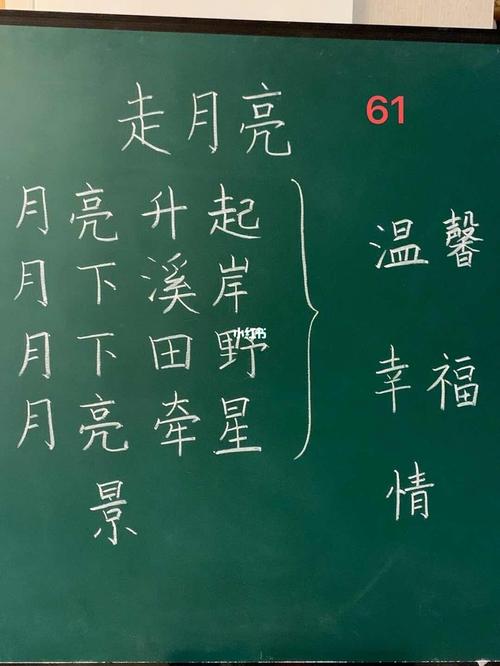 走月亮
61
月亮升起
月下溪岸
月下田野
月亮牵星
景
温馨
幸福
情
小红书